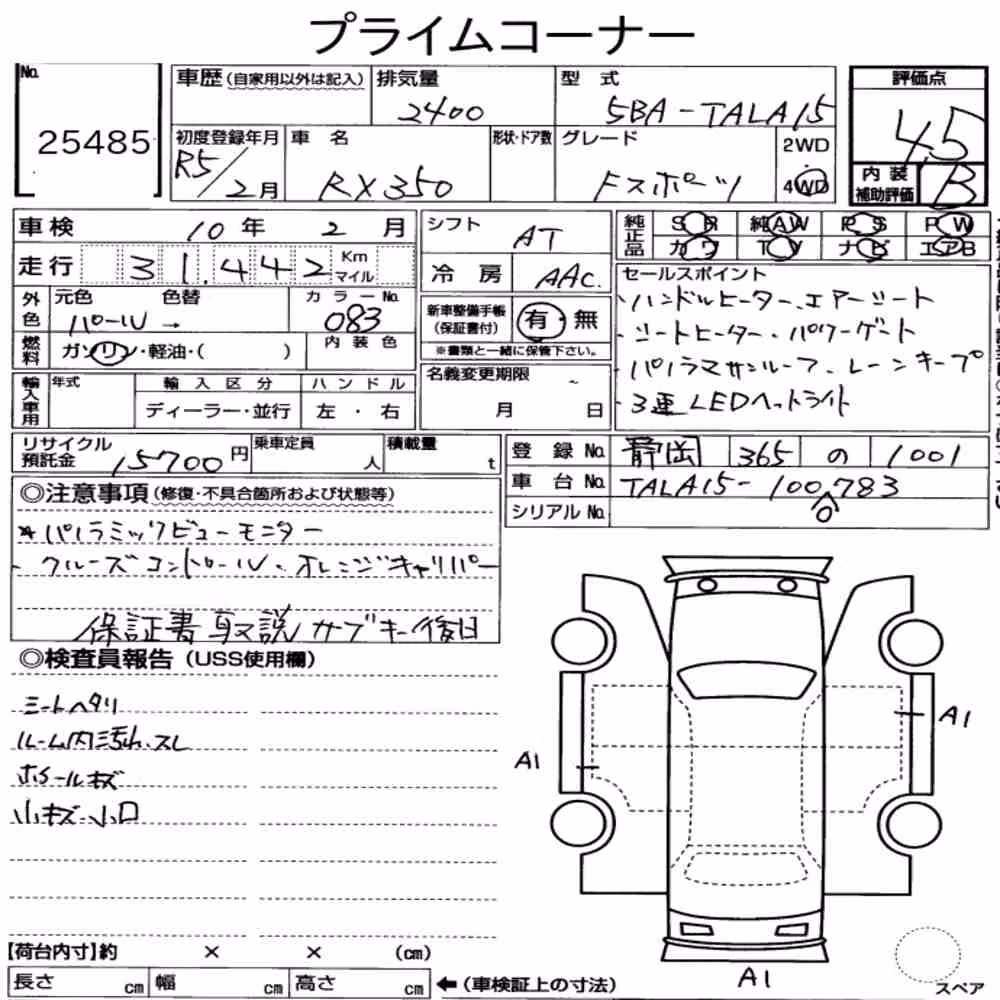 プライムコーナー
No.
25485
車歴(自家用以外は記入)
排気量
2400
型 式
5BA-TALA15
評価点
4.5
初度登録年月
R5/2月
車 名
RX350
形状・ドア数
グレード
Fスポーツ
2WD
4WD
内装補助評価
B
車検 10年 2月
走行 31,442 Km マイル
シフト
AT
冷 房
AAC.
純正品
SR 純AW PS PW
カワ TV ナビ エアB
外色
元色 色替
パール →
カラーNo.
083
燃料
ガソリン・軽油・( )
内 装 色
新車整備手帳(保証書付)
有・無
※書類と一緒に保管下さい。
セールスポイント
・ハンドルヒーター、エアーシート
・シートヒーター・パワーゲート
・パノラマサンルーフ、レーンキープ
・3連LEDヘットライト
輸入車用
年式
輸 入 区 分
ディーラー・並行
ハ ン ド ル
左 ・ 右
名義変更期限
~
月 日
リサイクル預託金
15700円
乗車定員
人
積載量
t
登 録 No. 静岡 365 の 1001
車 台 No. TALA15-100,783
0
シリアル No.
◎注意事項(修復・不具合箇所および状態等)
*パノラミックビューモニター
・クルーズコントロール・オレンジキャリパー
保証書 取説 サブキー後日
◎検査員報告(USS使用欄)
シートヘタリ
ルーム内汚れ.スレ
ホイールキズ
小キズ・小凹
A1
A1
A1
スペア
【荷台内寸】約 × × (cm)
長さ cm 幅 cm 高さ cm
←(車検証上の寸法)